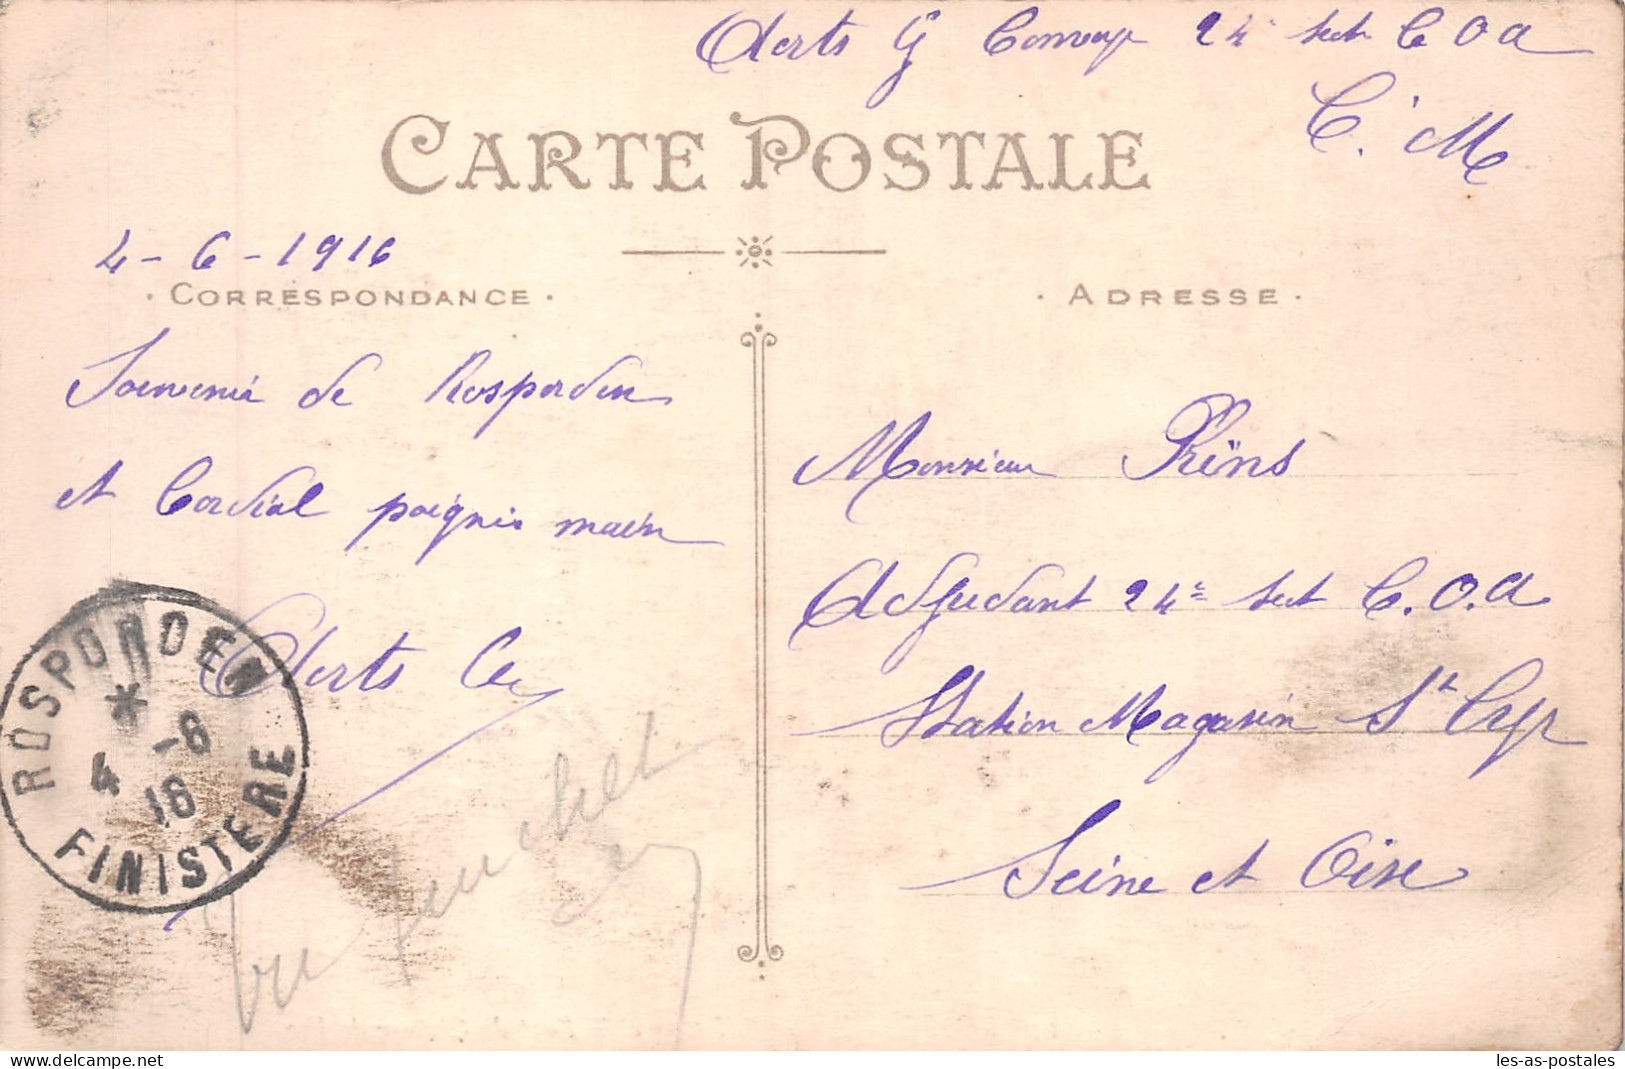 Aerts G Convoy 24e sect C O A
C. M
CARTE POSTALE
4-6-1916
· CORRESPONDANCE ·
· ADRESSE ·
Souvenir de Rosporden
et Cordial poignée main
Aerts
Monsieur Prëns
Adjudant 24e sect C.O.A
Station Magasin St Cyr
Seine et Oise
ROSPORDEN
*
4 -6
16
FINISTERE
Vu
www.delcampe.net
les-as-postales